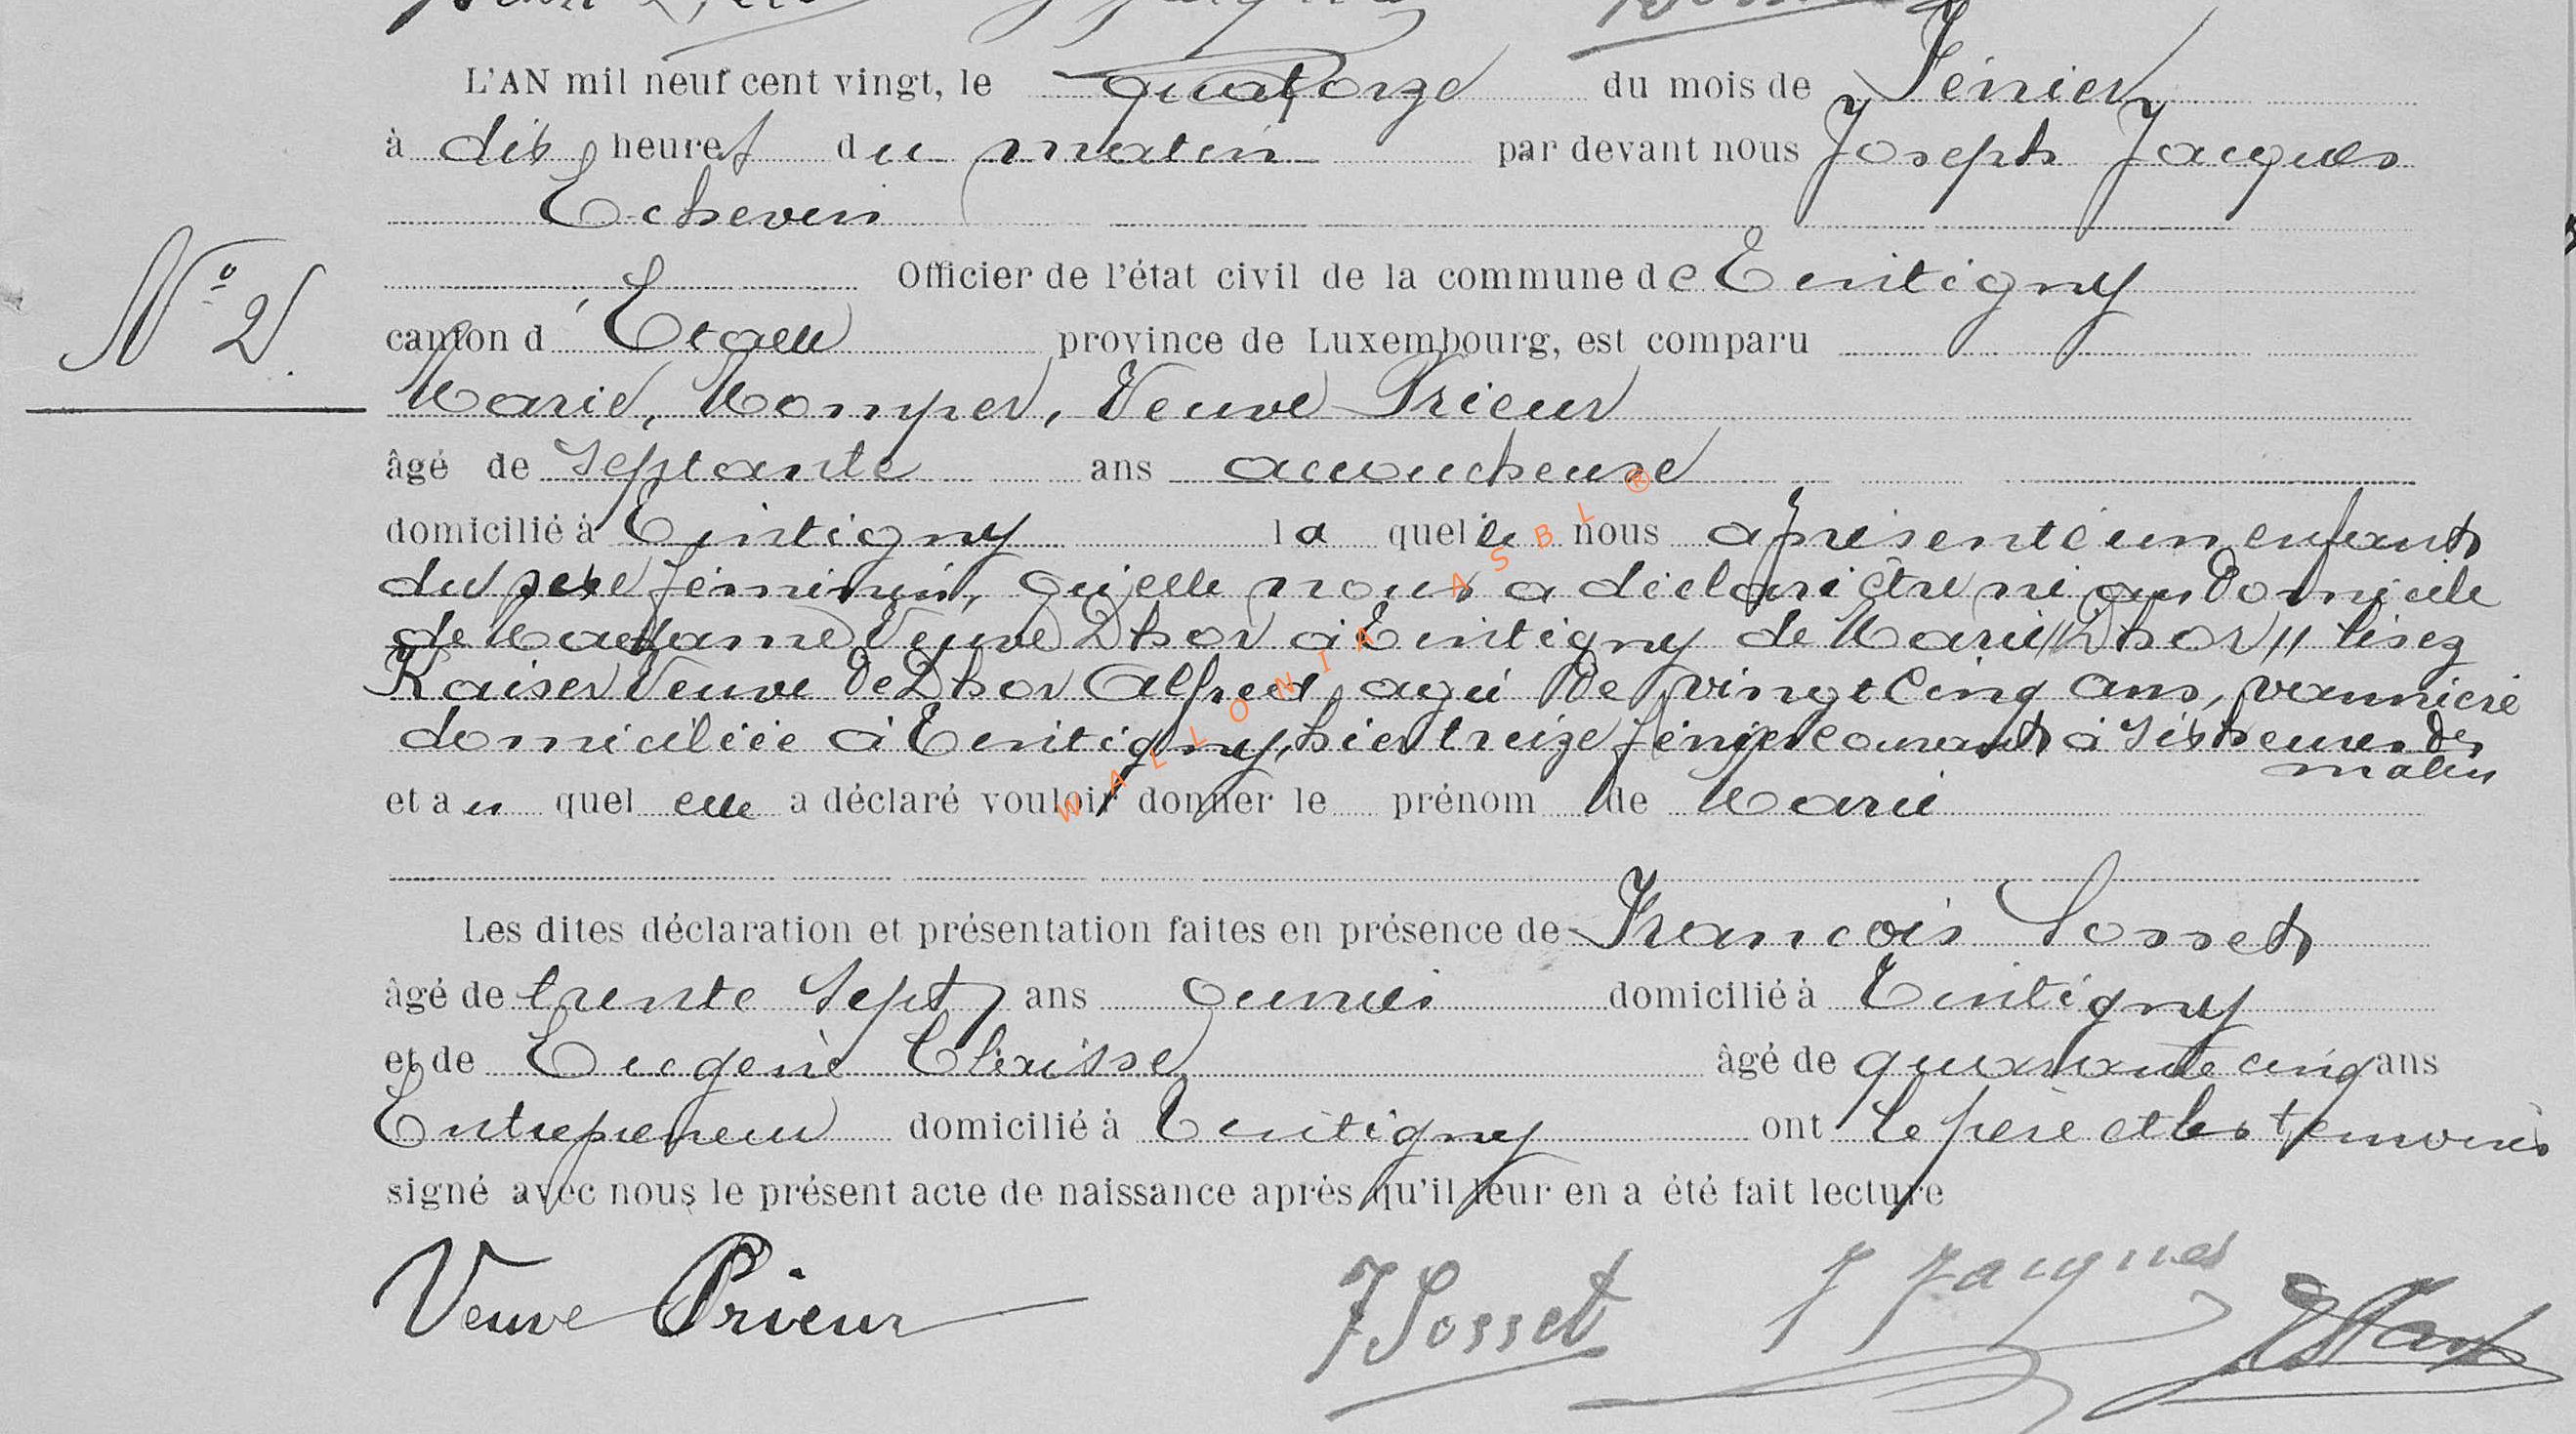 L'AN mil neuf cent vingt, le quatorze du mois de Février
à dix heures du matin par devant nous Joseph Jacques
Echevin
N° 2
Officier de l'état civil de la commune de Tintigny
canton d'Etalle province de Luxembourg, est comparu
Marie, Momper, Veuve Prieur
âgé de septante ans accoucheuse
domicilié à Tintigny laquelle nous a présenté un enfant
du sexe féminin, qu'elle nous a déclaré être né au Domicile
de Madame Veuve Dhor à Tintigny de Marie "Dhor" lisez
Kaiser Veuve de Dhor Alfred, agée de vingt cinq ans, vannière
domiciliée à Tintigny, hier treize février courant à six heures du
matin
et au quel elle a déclaré vouloir donner le prénom de Marie
Les dites déclaration et présentation faites en présence de François Sosset
âgé de trente sept ans domicilié à Tintigny
et de Eugène âgé de quarante cinq ans
Entrepreneur domicilié à Tintigny ont le père et les témoins
signé avec nous le présent acte de naissance après qu'il leur en a été fait lecture
Veuve Prieur
J Jacques
F Sosset
WALLONIA ASBL ®